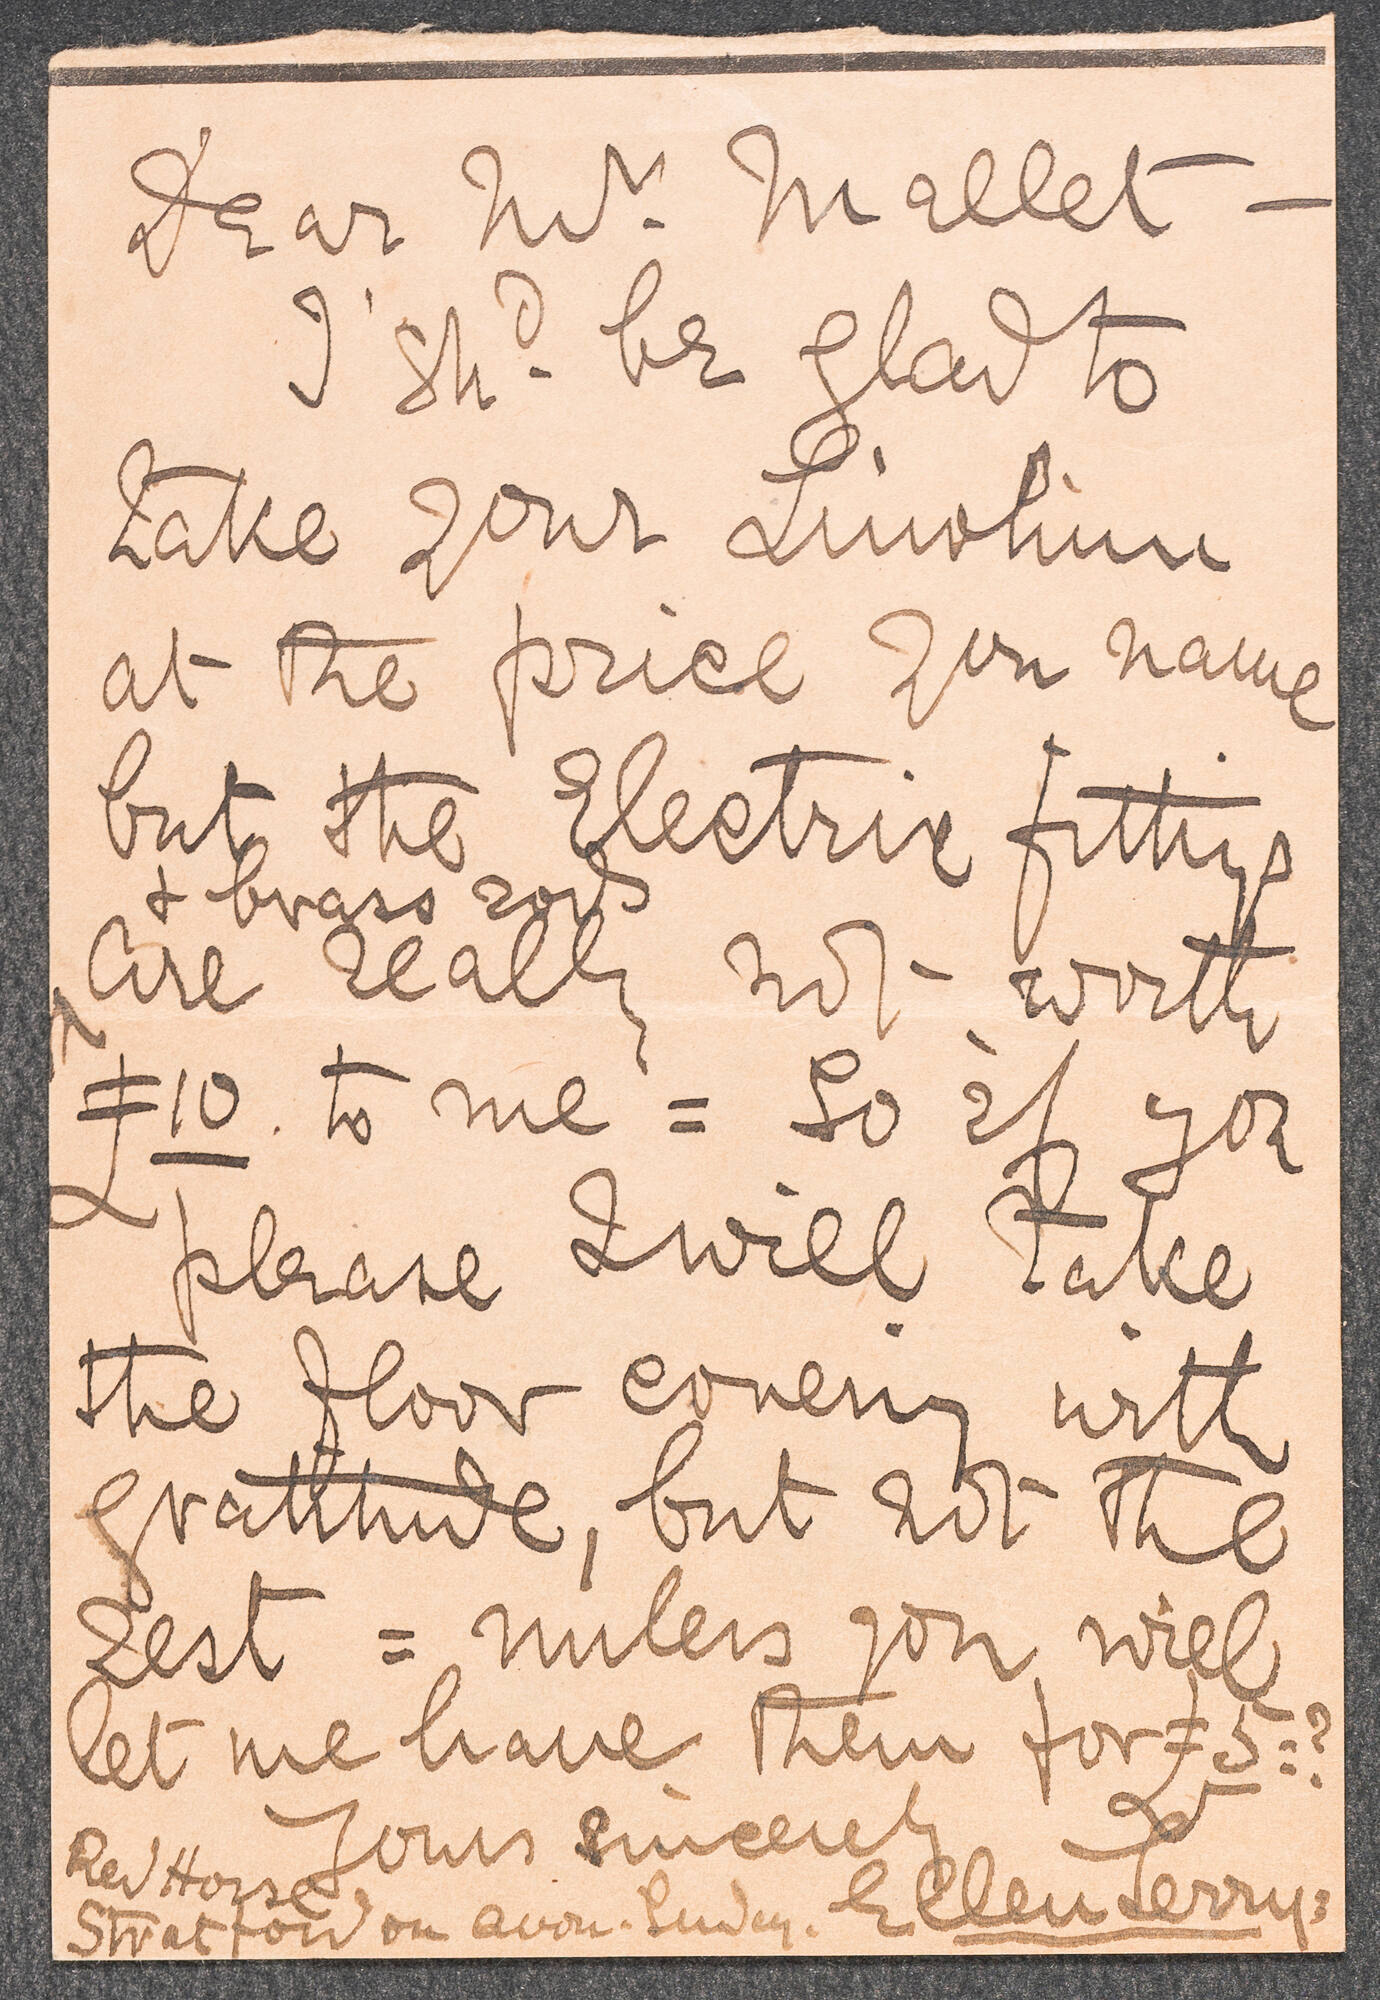 Dear Mr. Mallet —
I shd. be glad to
take your Linolium
at the price you name
but the Electric fittings
& brass rods
are really not worth
£10. to me = So if you
please I will take
the floor covering with
gratitude, but not the
rest = unless you will
let me have them for £5=?
Yours sincerely
Ellen Terry:
Red Horse
Stratford on Avon. Sunday.